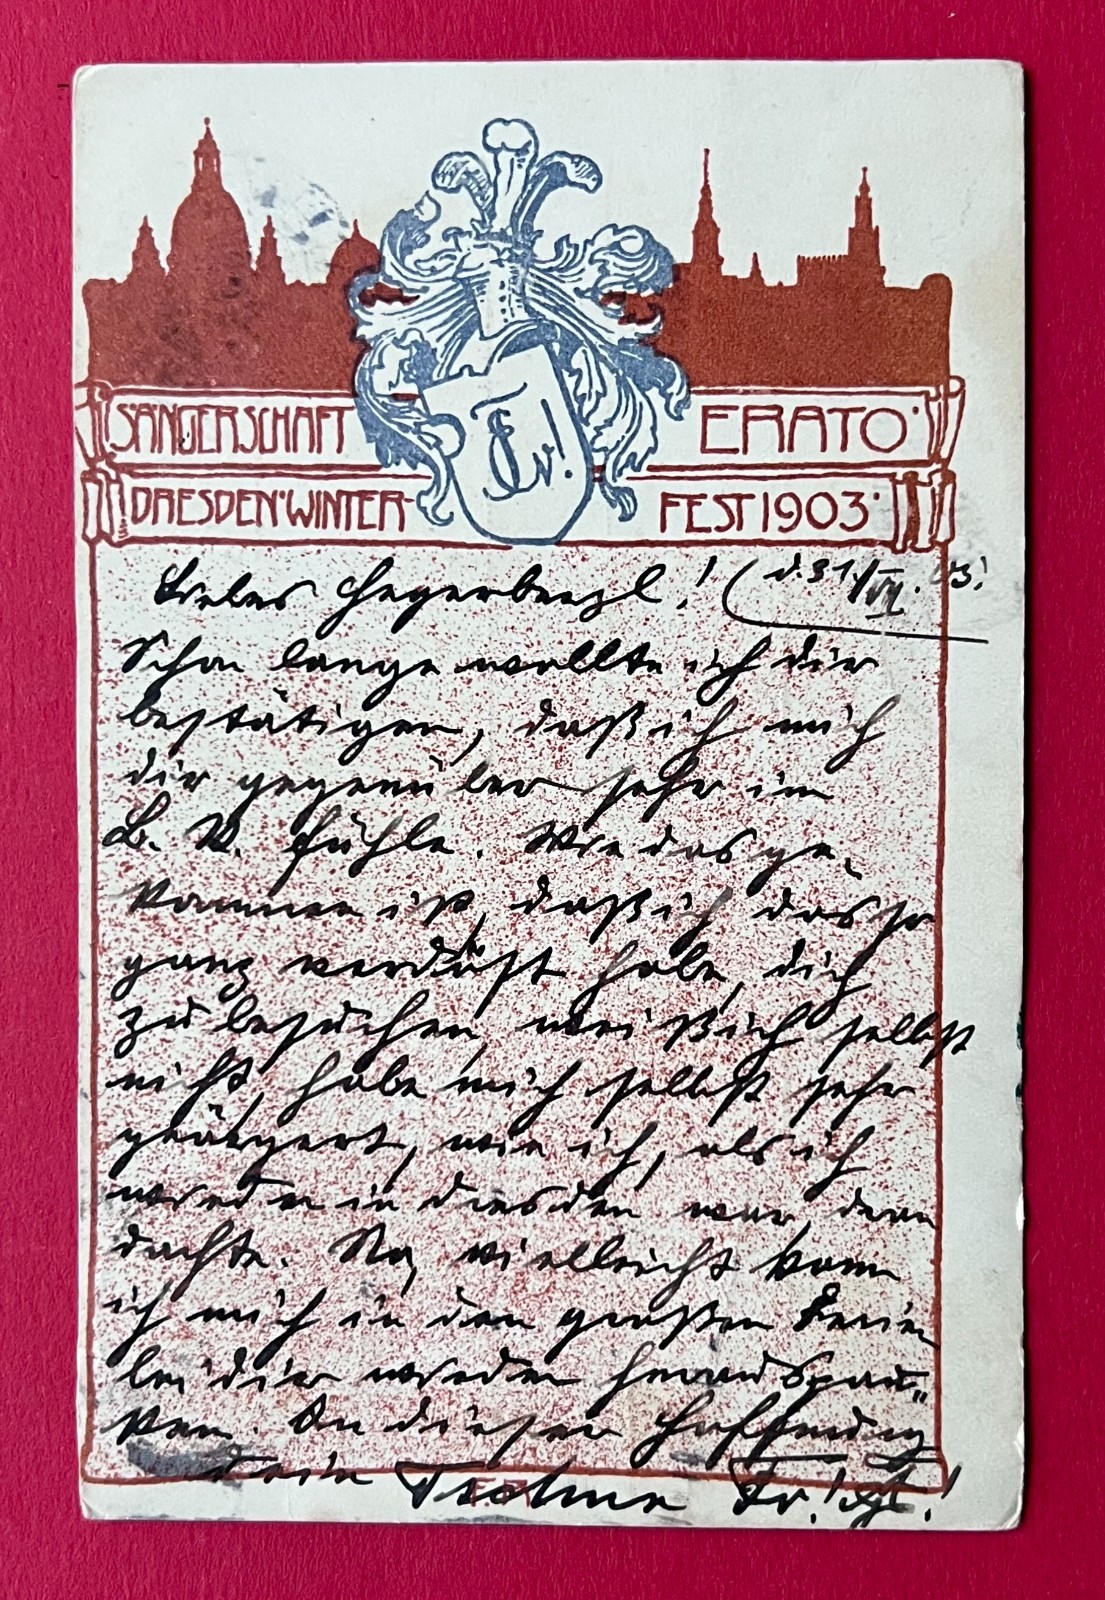 SÄNGERSCHAFT ERATO
DRESDEN WINTER-FEST 1903
Liebes ! (d. 31./VII. 03!
Schon lange wollte ich dir
bestätigen, daß ich mich
dir gegenüber sehr im
B. V. fühle. Wie das ge-
kommen ist, daß ich das so
ganz verduft habe, dich
zu besuchen, weiß ich selbst
nicht, habe mich selbst sehr
geärgert, wie ich, als ich
wieder in Dresden war, dran
dachte. Na, vielleicht kann
ich mich in den großen Ferien
bei dir wieder herauspau-
ken. In dieser Hoffnung
dein